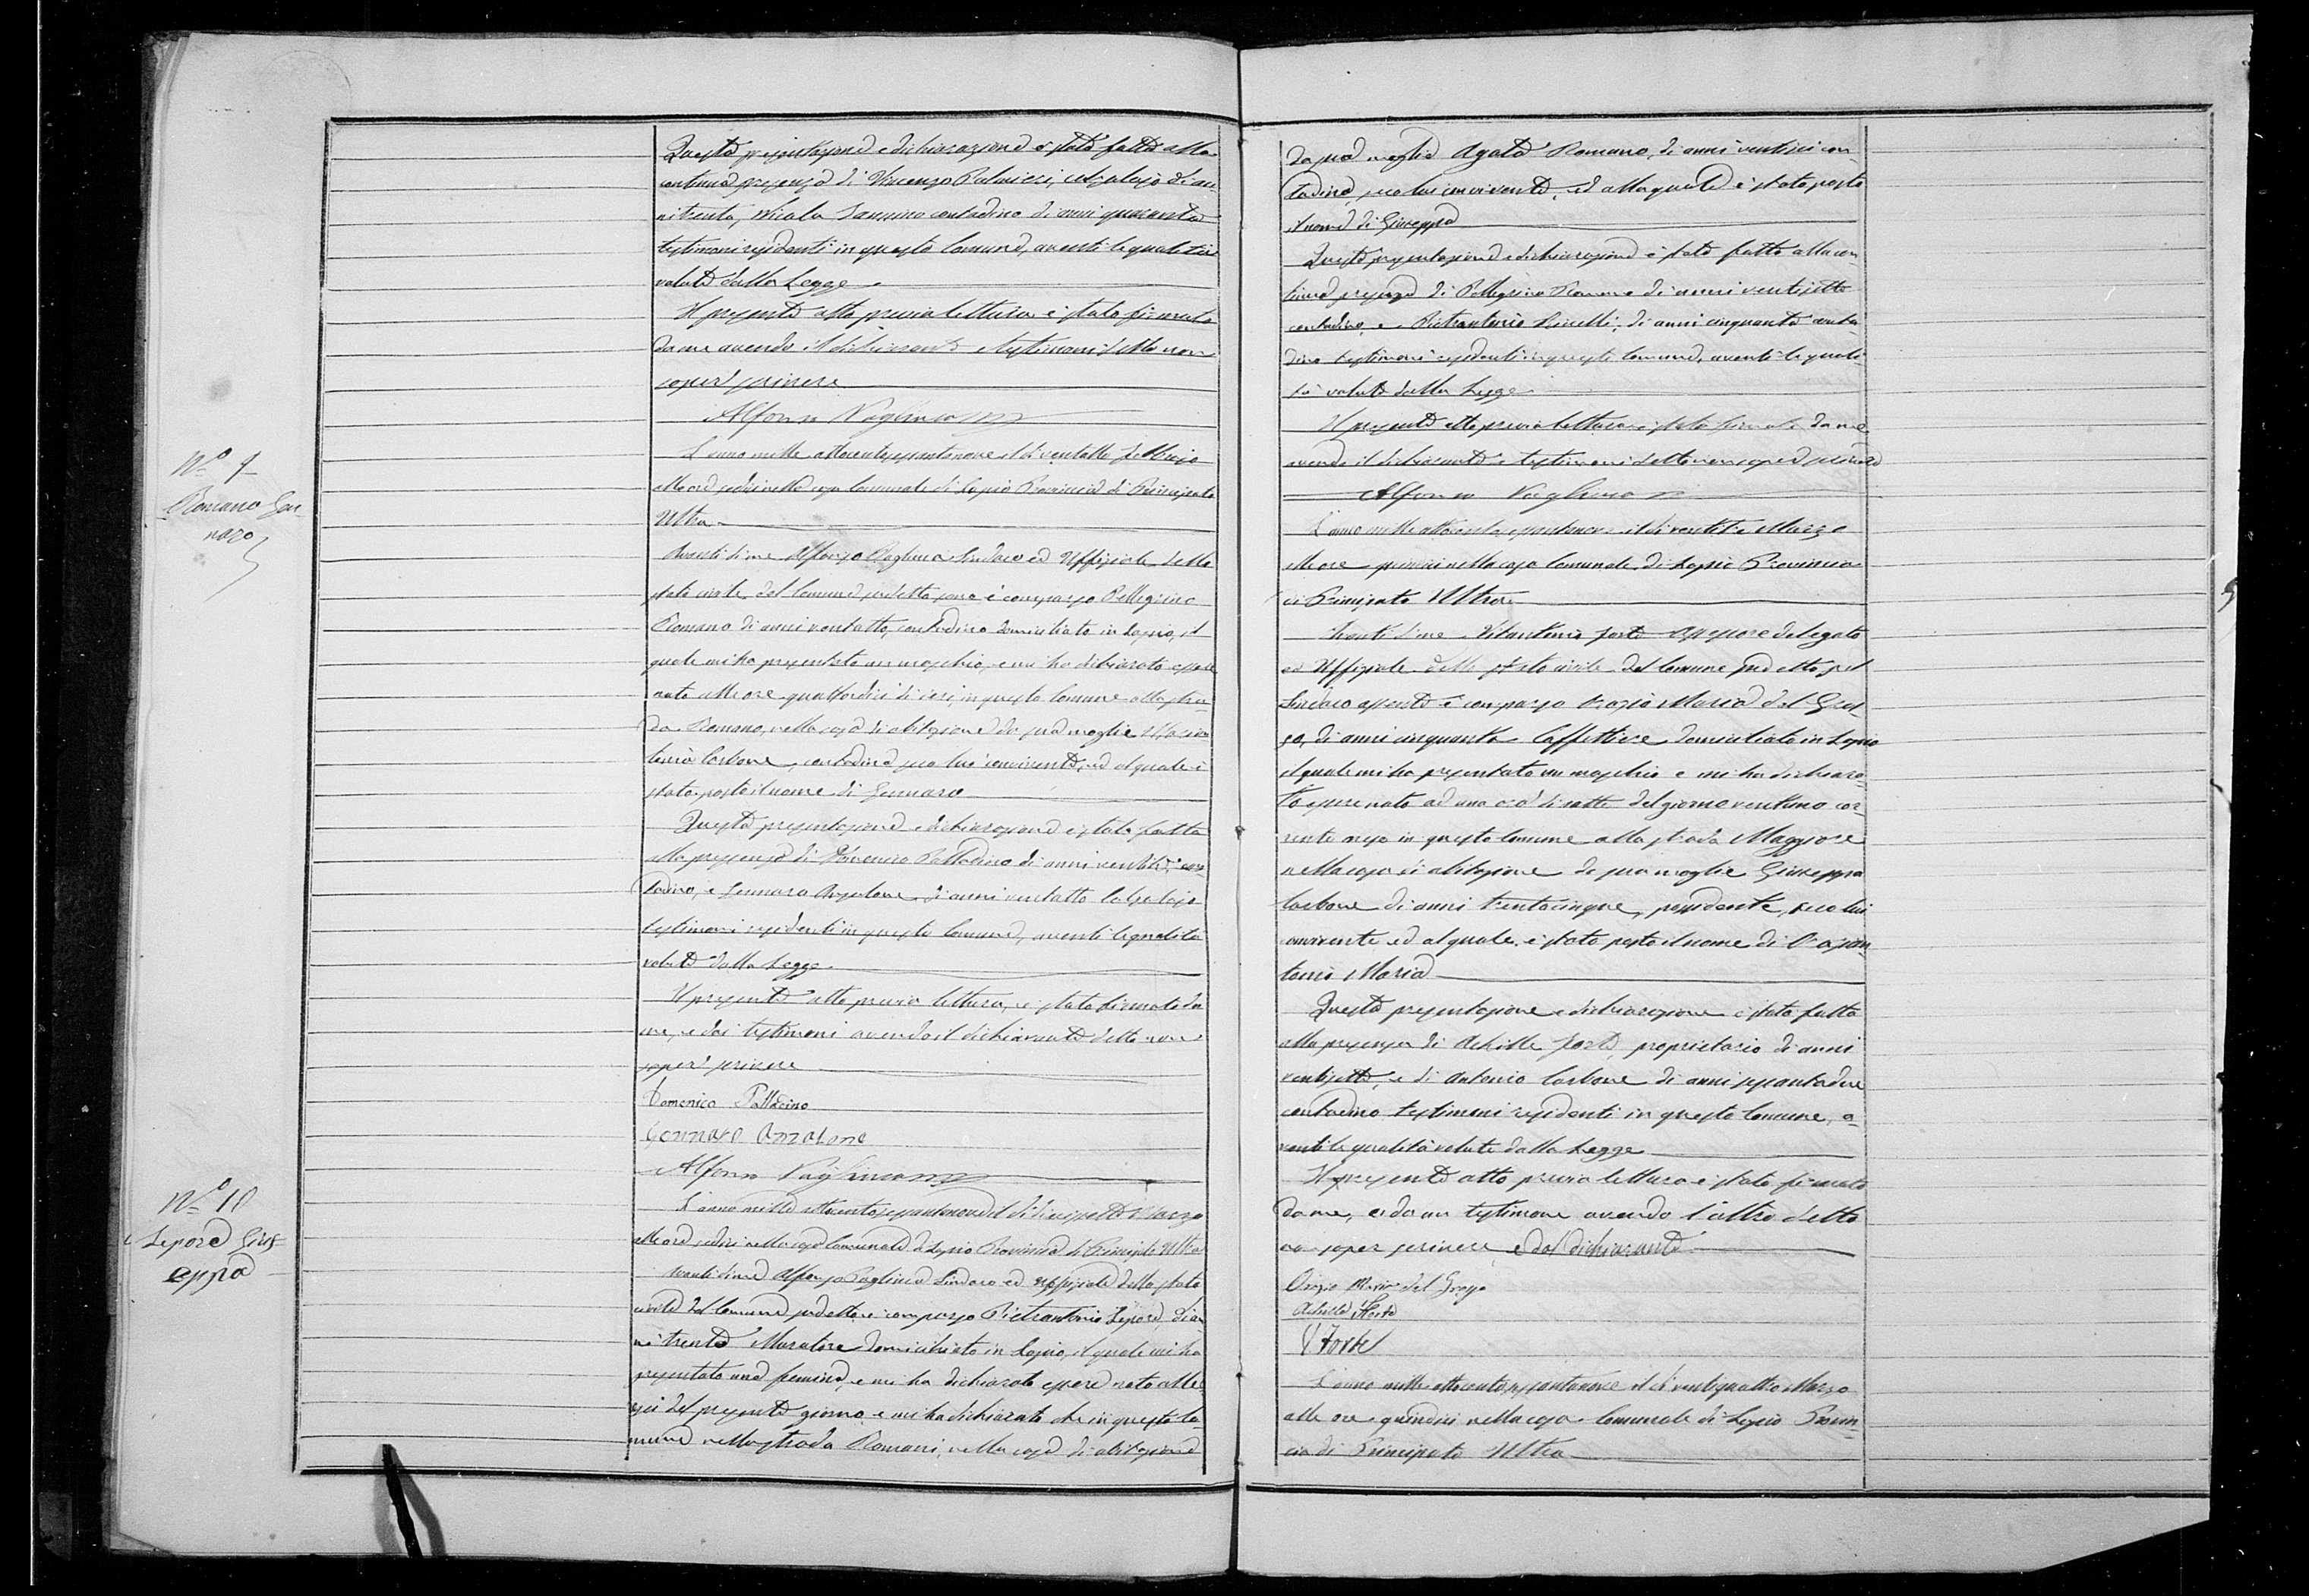 Questa presentazione e dichiarazione è stata fatta alla
continua presenza di Vincenzo Palmieri, calzolajo di an-
ni trenta, Nicola contadino di anni quaranta
testimoni residenti in questo Comune, aventi le qualità
volute dalla Legge
Il presente atto previa lettura è stato firmato
da me avendo il dichiarante e testimoni detto non
saper scrivere
Alfonso
N.° 9
Romano Gen-
naro
L'anno mille ottocentosessantanove il dì ventotto Febbrajo
alle ore sedici nella casa Comunale di Lapio Provincia di Principato
Ultra
Avanti di me Alfonso Sindaco ed Uffiziale dello
stato civile del Comune sudetto è comparso Pellegrino
Romano di anni ventotto, contadino domiciliato in Lapio, il
quale mi ha presentato un maschio, e mi ha dichiarato essere
nato alle ore quattordici di jeri, in questo Comune alla stra-
da Romano, nella casa di abitazione di sua moglie
Carbone, contadina seco lui convivente, ed al quale è
stato posto il nome di Gennaro
Questa presentazione e dichiarazione è stata fatta
alla presenza di Domenico Palladino di anni con-
tadino, e Gennaro Anzalone di anni ventotto Calzolajo
testimoni residenti in questo Comune, aventi le qualità
volute dalla Legge
Il presente atto previa lettura, è stato firmato da
me, e dai testimoni avendo il dichiarante detto non
saper scrivere
Domenico Palladino
Gennaro Anzalone
Alfonso
N.° 10
Lepore Gius-
eppa
L'anno mille ottocentosessantanove il dì Marzo
alle ore sedici nella casa Comunale di Lapio Provincia di Principato Ultra
Avanti di me Alfonso Sindaco ed Uffiziale dello stato
civile del Comune sudetto è comparso Pietrantonio Lepore, di an-
ni trenta Muratore domiciliato in Lapio, il quale mi ha
presentato una femina, e mi ha dichiarato essere nata alle
sei del presente giorno e mi ha dichiarato che in questo Co-
mune nella strada Romani, nella casa di abitazione
da sua moglie Agata Romano, di anni con-
tadina, seco lui convivente, ed alla quale è stato posto
il nome di Giuseppa
Questa presentazione e dichiarazione è stata fatta alla con-
tinua presenza di Pellegrino Romano di anni ventisette
contadino, e Pietrantonio di anni cinquanta conta-
dino testimoni residenti in questo Comune, aventi le quali-
tà volute dalla Legge
Il presente atto previa lettura è stato firmato da me
avendo il dichiarante e testimoni detto non saper scrivere
Alfonso
L'anno mille ottocento sessantanove il dì Marzo
alle ore quindici nella casa Comunale di Lapio Provincia
di Principato Ultra
Avanti di me Vitantonio Forte Assessore delegato
ed Uffiziale dello stato civile del Comune sudetto pel
Sindaco assente è comparso Orazio Maria del Gros-
so, di anni cinquanta Caffettiere domiciliato in Lapio
il quale mi ha presentato un maschio e mi ha dichiara-
to essere nato ad una ora di notte del giorno ventuno cor-
rente mese in questo Comune alla strada Maggiore
nella casa di abitazione di sua moglie Giuseppa
Carbone di anni trentacinque, possidente, seco lui
convivente ed al quale è stato posto il nome di
Maria
Questa presentazione e dichiarazione è stata fatta
alla presenza di Achille Forte, proprietario di anni
ventisette, e di Antonio Carbone di anni sessantadue
contadino testimoni residenti in questo Comune, a-
venti le qualità volute dalla Legge
Il presente atto previa lettura è stato firmato
da me, e da un testimone avendo l'altro detto
non saper scrivere, e dal dichiarante
Orazio Maria del Grosso
Achille Forte
V Forte
L'anno mille ottocento sessantanove il dì ventiquattro Marzo
alle ore quindici nella casa Comunale di Lapio Provin-
cia di Principato Ultra